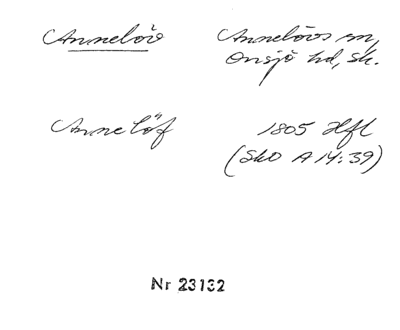 Annelöv Annelövs sn,
Onsjö hd, Sk.
Annelöf 1805 Hfl
(SkO A 14:39)
Nr 23132